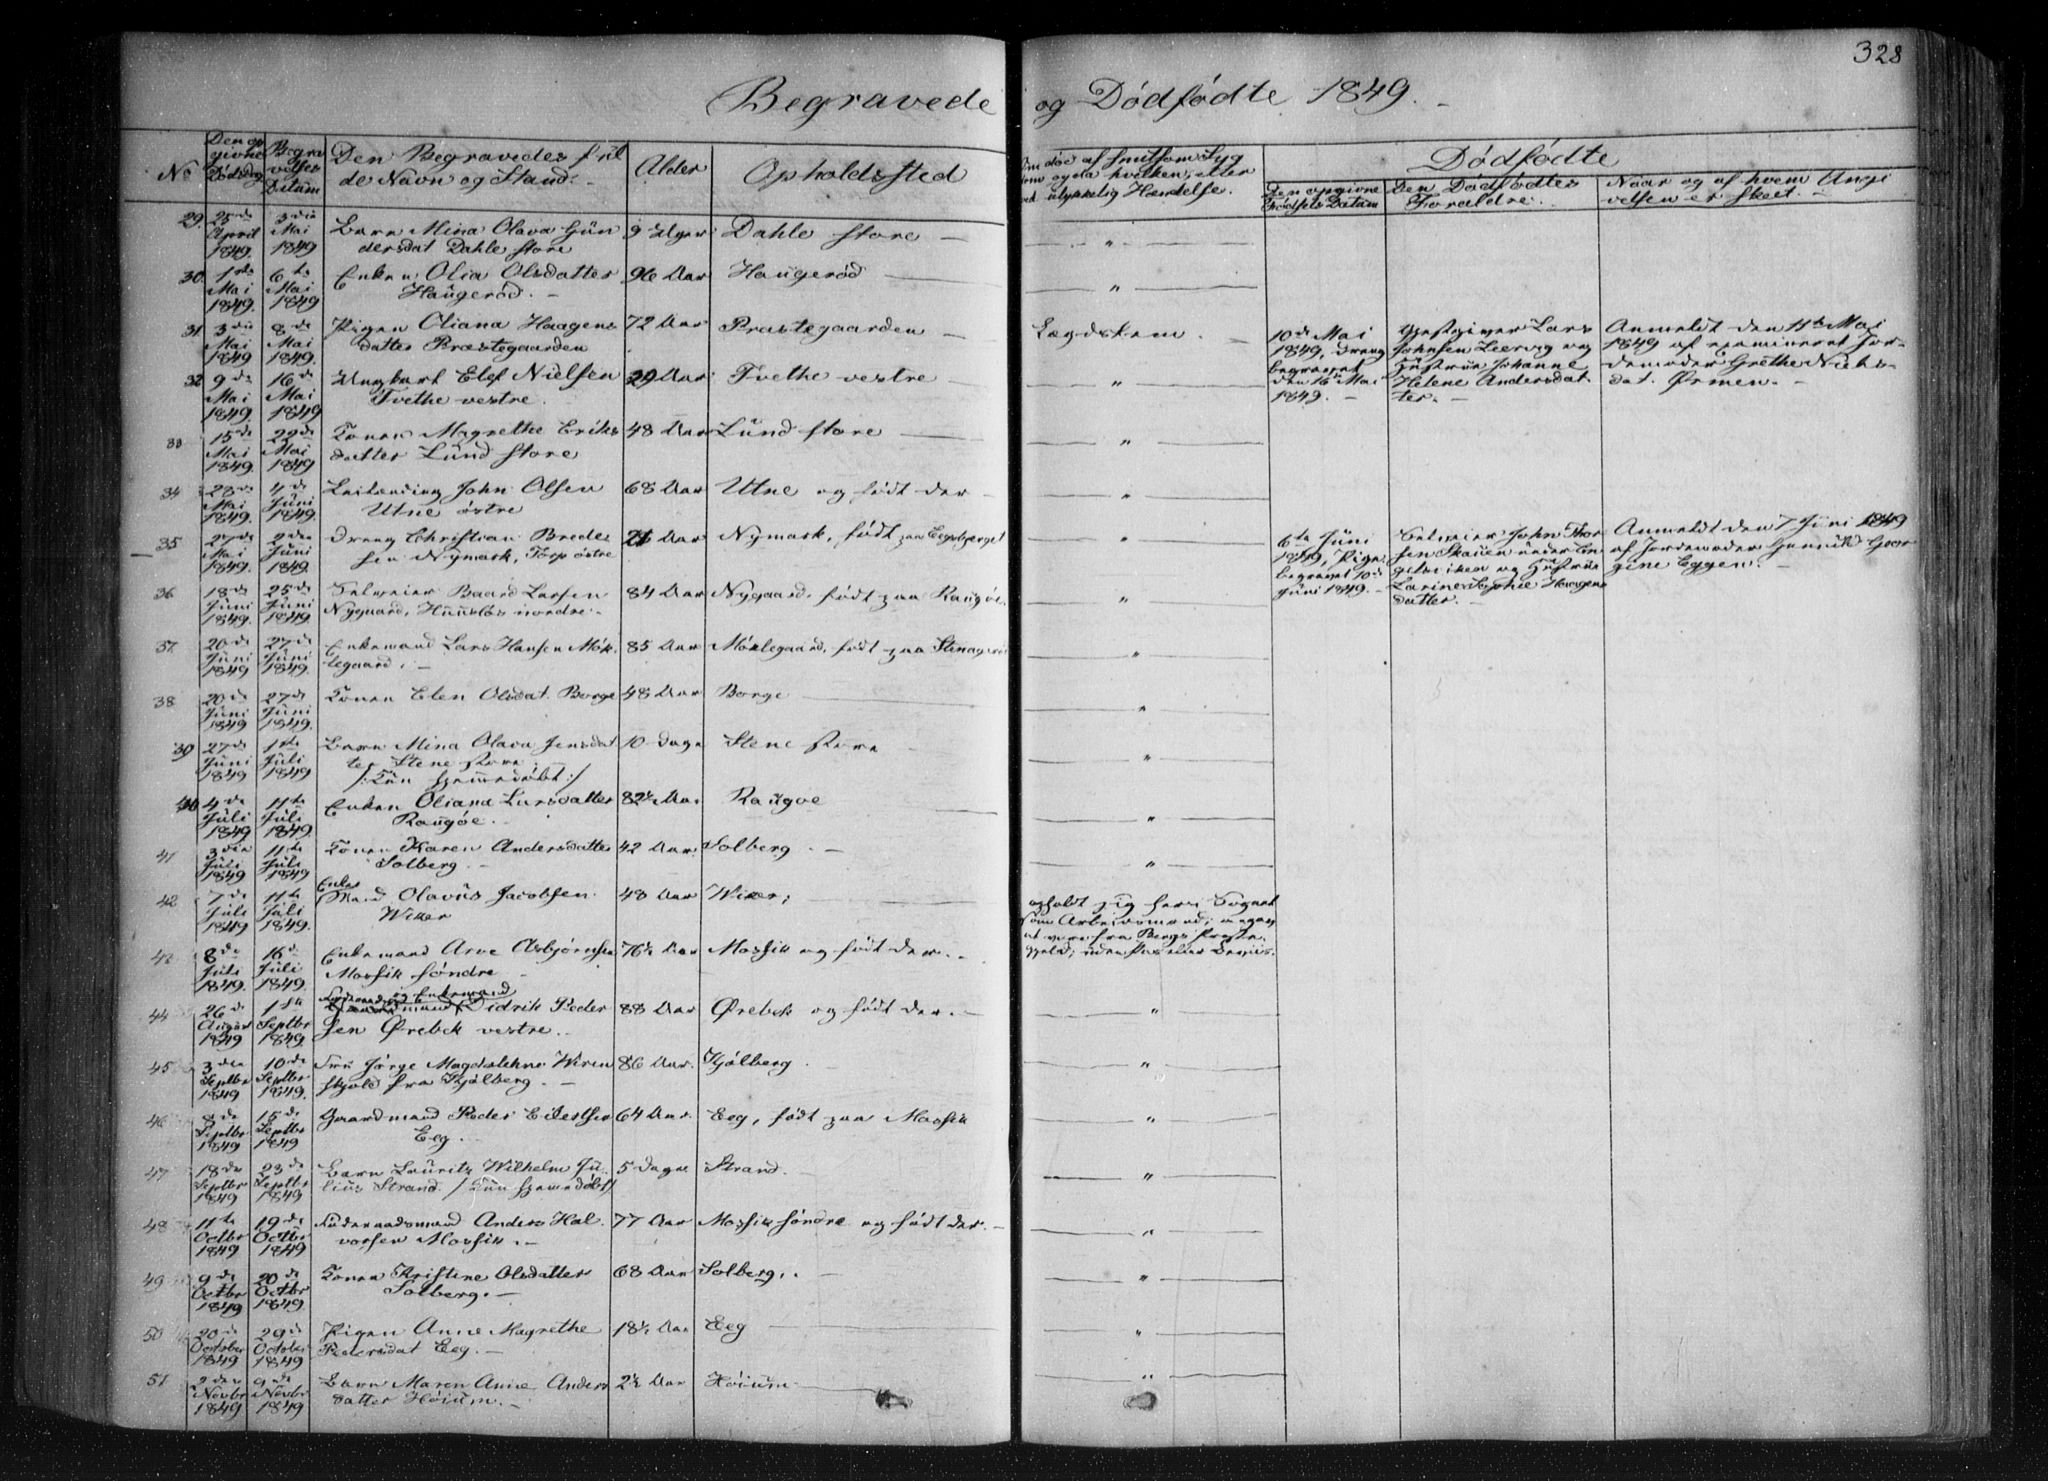 328
Begravede og Dødfødte 1849.
No
Den op
givne
Dødsdag
Begra
velses
Datum
Den Begravedes ful
de Navn og Stand.
Alder
Opholdssted
død af smitsom Syg
og da hvilken, eller
ulykkelig Hændelse.
Dødfødte
Den opgivne
Fødsels Datum
Den Dødfødtes
Forældre.
Naar og af hvem Angi
velsen er skeet.
29. 25de April 1849. 3die Mai 1849 Barn Mina Olava Gün
dersdat Dahle store 9 Uger Dahle store "
30. 1ste Mai 1849. 6te Mai 1849 Enken Olia Olsdatter
Haügerød. 96 Aar Haügerød "
31 3die Mai 1849 8de Mai 1849. Pigen Oliana Haagens
datter Præstegaarden 72 Aar Præstegaarden Lægdslem.
10de Mai
1849, Dreng
begravet
den 16de Mai
1849.
Gjestgiver Lars
Johnsen Leervig og
Hüstrüe Johanne
Helene Andersdat
ter.
Anmeldt den 11te Mai
1849 af examineret Jor
demoder Grethe Niels
dat. Ørmen.
32 9de Mai 1849 16de Mai 1849 Ungkarl Elef Nielsen
Tvethe vestre. 29 Aar Tvethe vestre "
33 15de Mai 1849. 22de Mai 1849 Konen Magrethe Eriks
datter Lünd store 48 Aar Lünd store "
34 28de Mai 1849. 4de Jüni 1849. John Olsen
Utne østre 68 Aar Utne og født der "
35 27de Mai 1849. 2den Jüni 1849. Dreng Christian Brede
sen Nÿmark, Torp østre 21 Aar Nymark, født paa Eegebjerget "
6te Jüni
1849, Pige
begravet 10de
Jüni 1849.
Selveier John Thor
sen Skaüen ünder En
og Hüstrüe
Larine Sophie Haagens
datter.
Anmeldt den 7 Jüni 1849
af Jordemoder Henrik Geor
gine Eggen.
36 18de Jüni 1849. 25de Jüni 1849. Selveier Baard Larsen
Nygaard, Hünslos nordre. 84 Aar Nygaard, født paa Raügøe. "
37. 20de Jüni 1849 27de Jüni 1849. Enkemand Lars Hansen Møk
legaard. 85 Aar Møklegaard, født paa "
38 20de Jüni 1849 27de Jüni 1849. Konen Elen Olsdat. Borge 48 Aar Borge "
39 27de Jüni 1849 1ste Jüli 1849. Barn Mina Olava Jensdat
ter Stene store
/:Kün hjemmedøbt:/ 10 Dage Stene store "
40 4de Jüli 1849 11te Jüli 1849. Enken Oliana Larsdatter
Raügøe. 82½ Aar Raügøe "
41 3die Jüli 1849 11te Jüli 1849 Konen Karen Andersdatter
Solberg. 42 Aar Solberg. "
42 7de Jüli 1849 11te Jüli 1849. Enke
Mand Olavüs Jacobsen
Wiker 48 Aar Wiker;
opholdt sig her i Sognet
som Arbeidsmand; angav
at være fra Bergs Præste
gjeld; uden Pas eller Beviis.
43 8de Jüli 1849. 16de Jüli 1849. Enkemand Arve Asbjørnsen
Mossik søndre 76½ Aar Mossik og født der.
44 26de Aügüst 1849 1ste Septbr 1849. og Enkemand
Didrik Peder
sen Ørebek vestre. 88 Aar Ørebek og født der. "
45 3die Septbr 1849 10de Septbr 1849. Früe Jørge Magdalehne Wiren
skjold fra Kjølberg. 86 Aar. Kjølberg. "
46 8de Septbr 1849 15de Septbr 1849 Gaardmand Peder Eilertsen
Eeg. 64 Aar. Eeg, født paa Mossik "
47 18de Septbr 1849 23de Septbr 1849 Barn Laüritz Wilhelm Jü
liüs Strand. / Kün hjemmedøbt/ 5 Dage Strand. "
48 11te Octbr 1849 19de Octbr 1849 Føderaadsmand Anders Hal
vorsen Mossik. 77 Aar Mossik søndre og født der. "
49 9de Octbr 1849 20de Octbr 1849. Konen Kristine Olsdatter
Solberg. 68 Aar Solberg. "
50 20de October 1849 29de October 1849 Pigen Anne Magrethe
Pedersdat Eeg. 18½ Aar Eeg "
51 2den Novbr 1849 9de Novbr 1849 Barn Maren Anne Anders
datter Høiüm. 2½ Aar Høiüm "